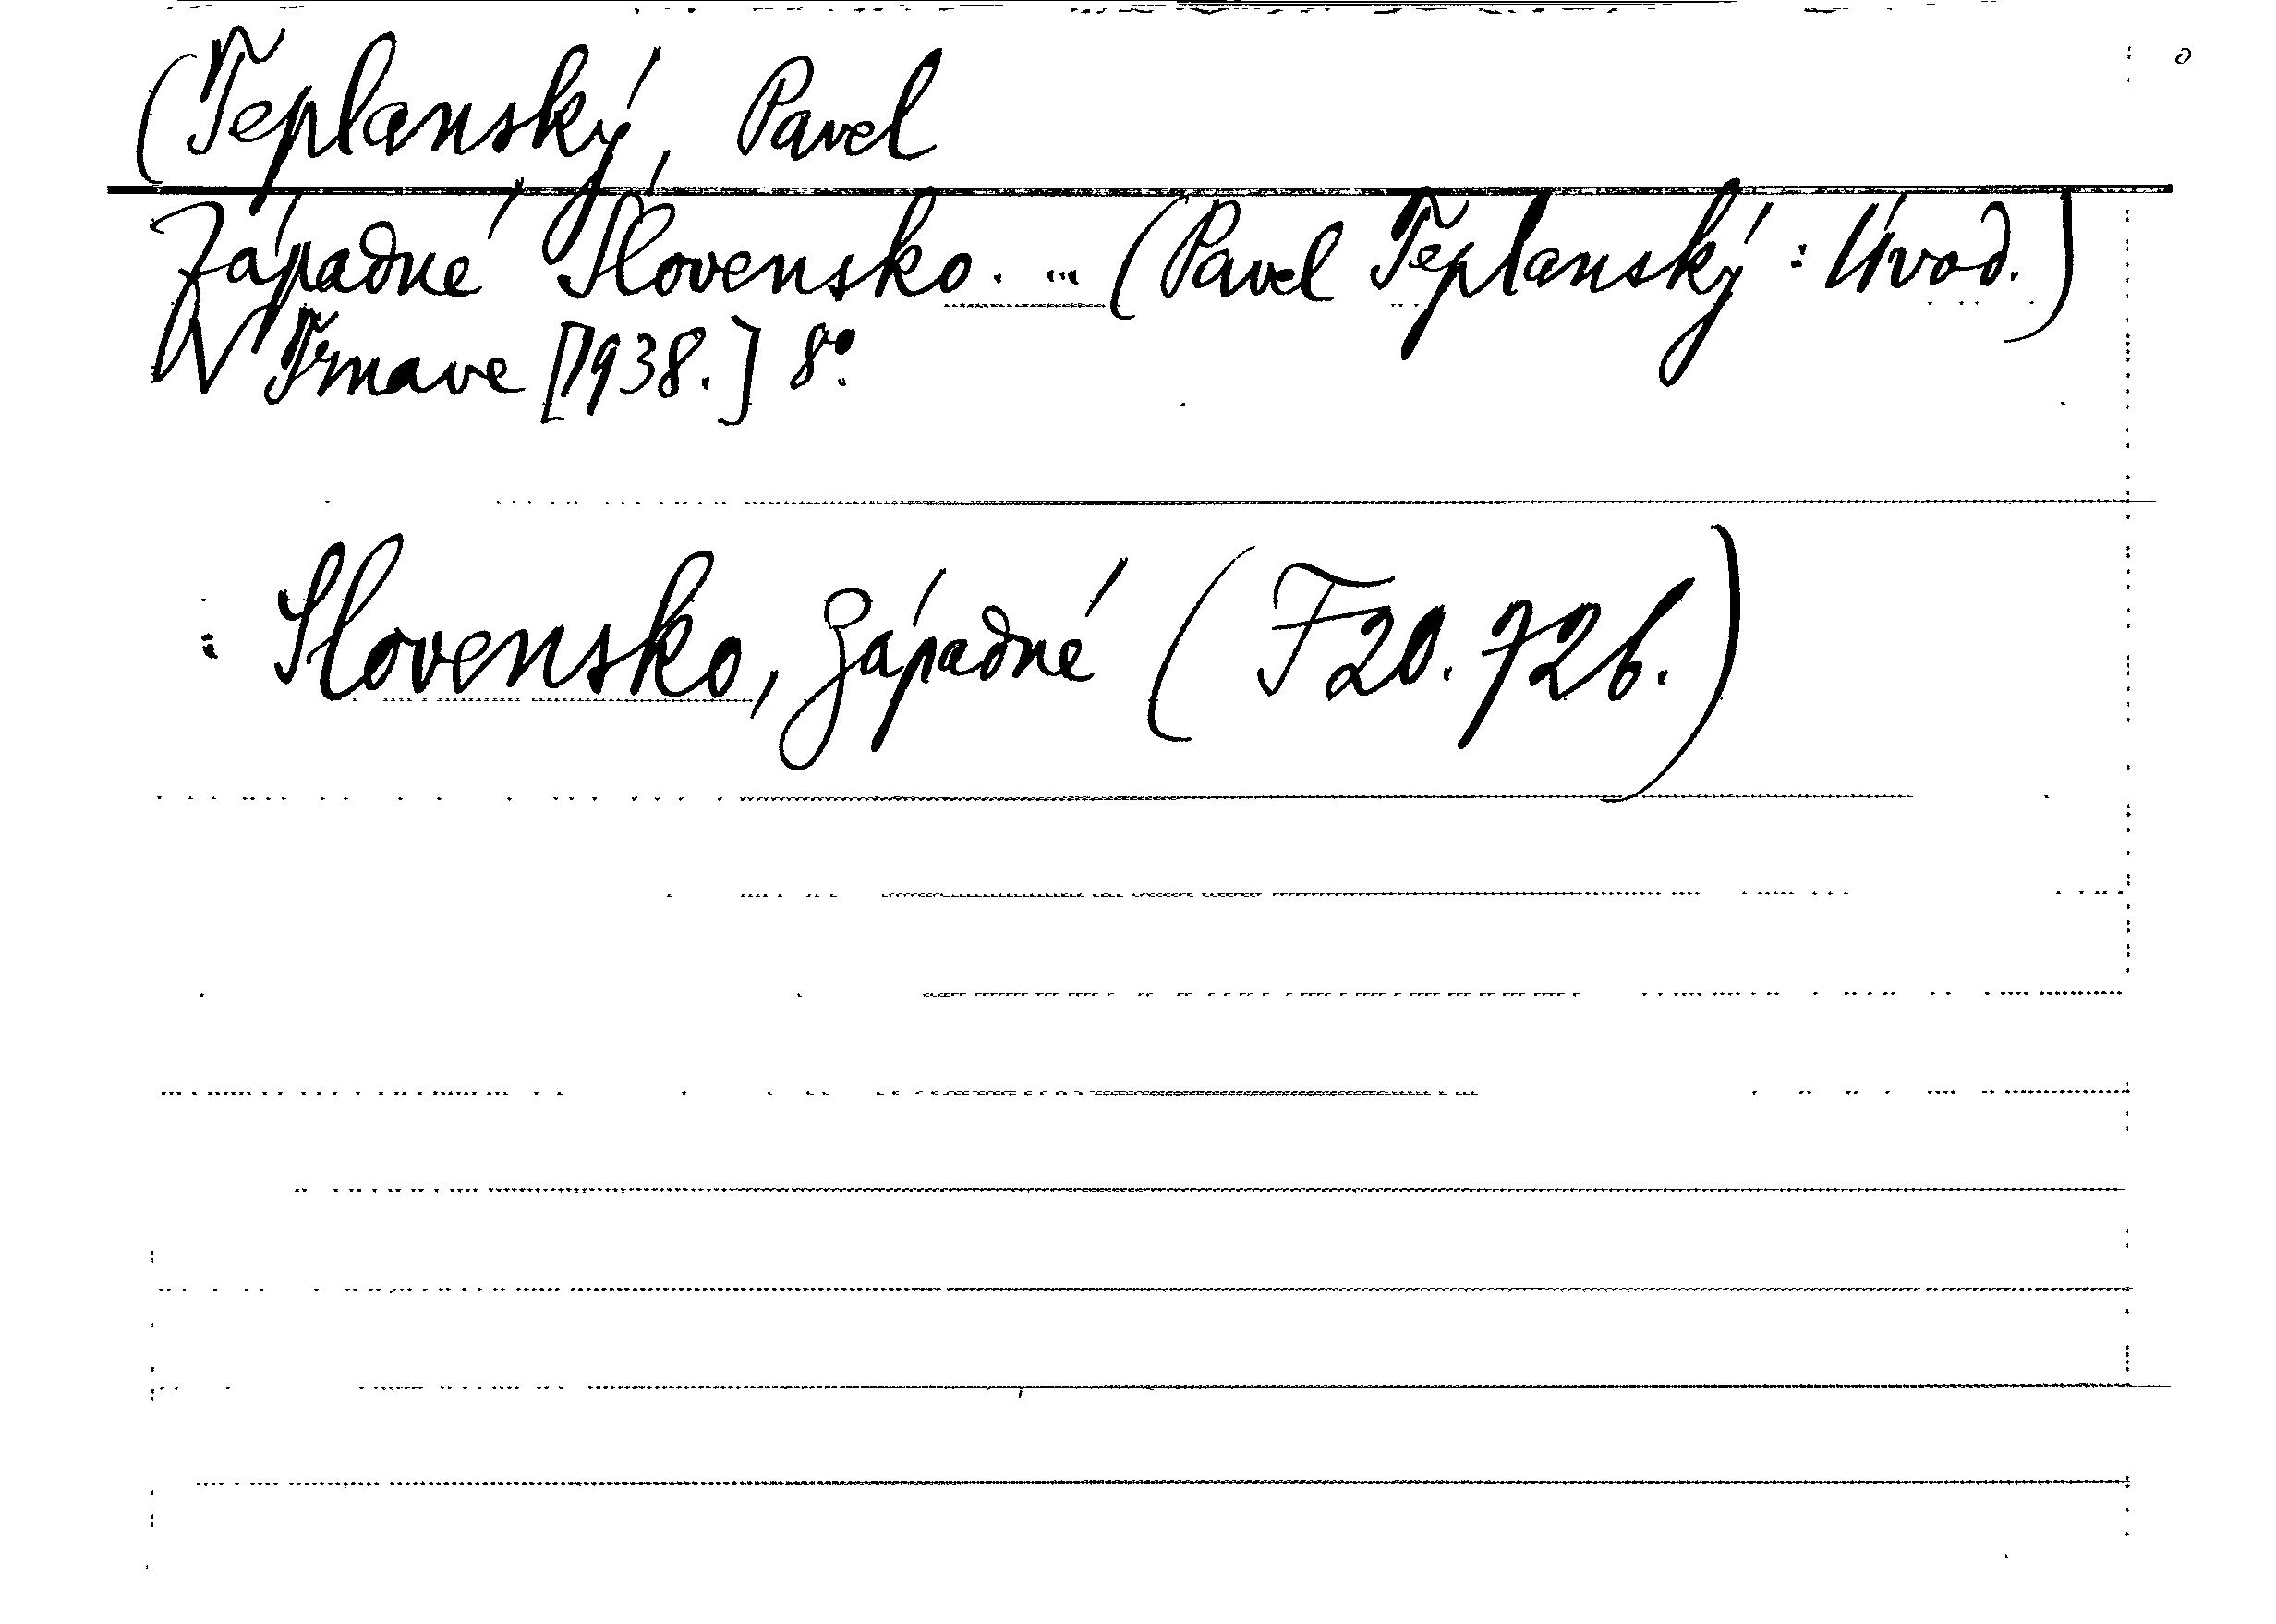 (Teplanský, Pavel
Západné Slovensko. ... (Pavel Teplanský: Úvod.)
V Trnave [1938.] 8°.
: Slovensko, Západné (F 20.726.)